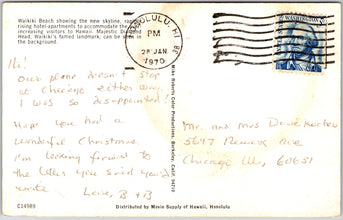 Waikiki Beach showing the new skyline,
rising hotel-apartments to accommodate the
increasing visitors to Hawaii. Majestic Diamond
Head, Waikiki's famed landmark, can be seen in
the background.
HONOLULU, HI
PM
28 JAN
1970
Hi!
Our plane doesn't stop
at Chicago either way.
I was so disappointed!
Hope you had a
wonderful Christmas.
I'm looking forward to
the letter you said you'd
write.
Love, B + B
Mike Roberts Color Productions, Berkeley, Calif. 94710
Mr. and Mrs
Ave
Chicago Ill, 60651
C14989
Distributed by Movie Supply of Hawaii, Honolulu